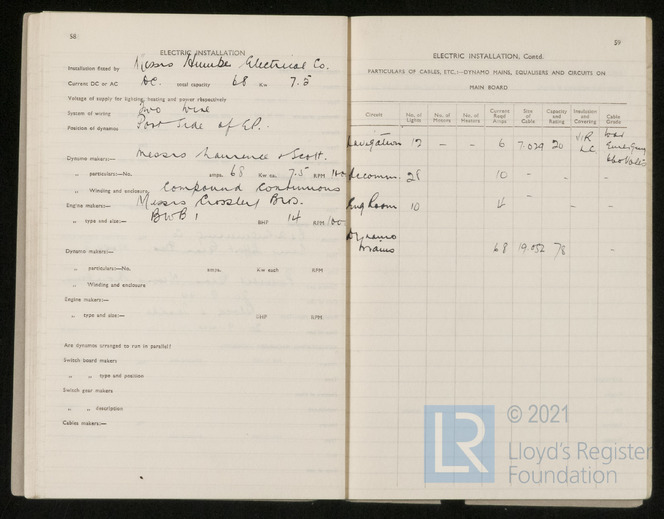 58
ELECTRIC INSTALLATION
Installation fitted by Messrs Humber Electrical Co.
Current DC or AC DC. total capacity 68 Kw 7.5
Voltage of supply for lighting, heating and power respectively
System of wiring Two Wire
Position of dynamos Port Side of E.P.
Dynamo makers:— Messrs Laurence & Scott.
„ particulars:—No. amps. 68 Kw ea. 7.5 RPM
„ Winding and enclosure Compound Continuous
Engine makers:— Messrs Crossley Bros.
„ type and size:— BWB 1 BHP 14 RPM
Dynamo makers:—
„ particulars:—No. amps. Kw each RPM
„ Winding and enclosure
Engine makers:—
„ type and size:— BHP RPM
Are dynamos arranged to run in parallel?
Switch board makers
„ „ type and position
Switch gear makers
„ „ description
Cables makers:—
59
ELECTRIC INSTALLATION, Contd.
PARTICULARS OF CABLES, ETC.:—DYNAMO MAINS, EQUALISERS AND CIRCUITS ON
MAIN BOARD
Circuits No. of Lights No. of Motors No. of Heaters Current Read Amps Size of Cable Capacity and Rating Insulation and Covering Cable Grade
Navigation 12 – – 6 7.029 20 VIR LC War Emergency
Accomm. 28 10 – – – –
Eng Room 10 4 – – –
Dynamo Mains 68 19.052 78 –
© 2021
LR
Lloyd's Register
Foundation